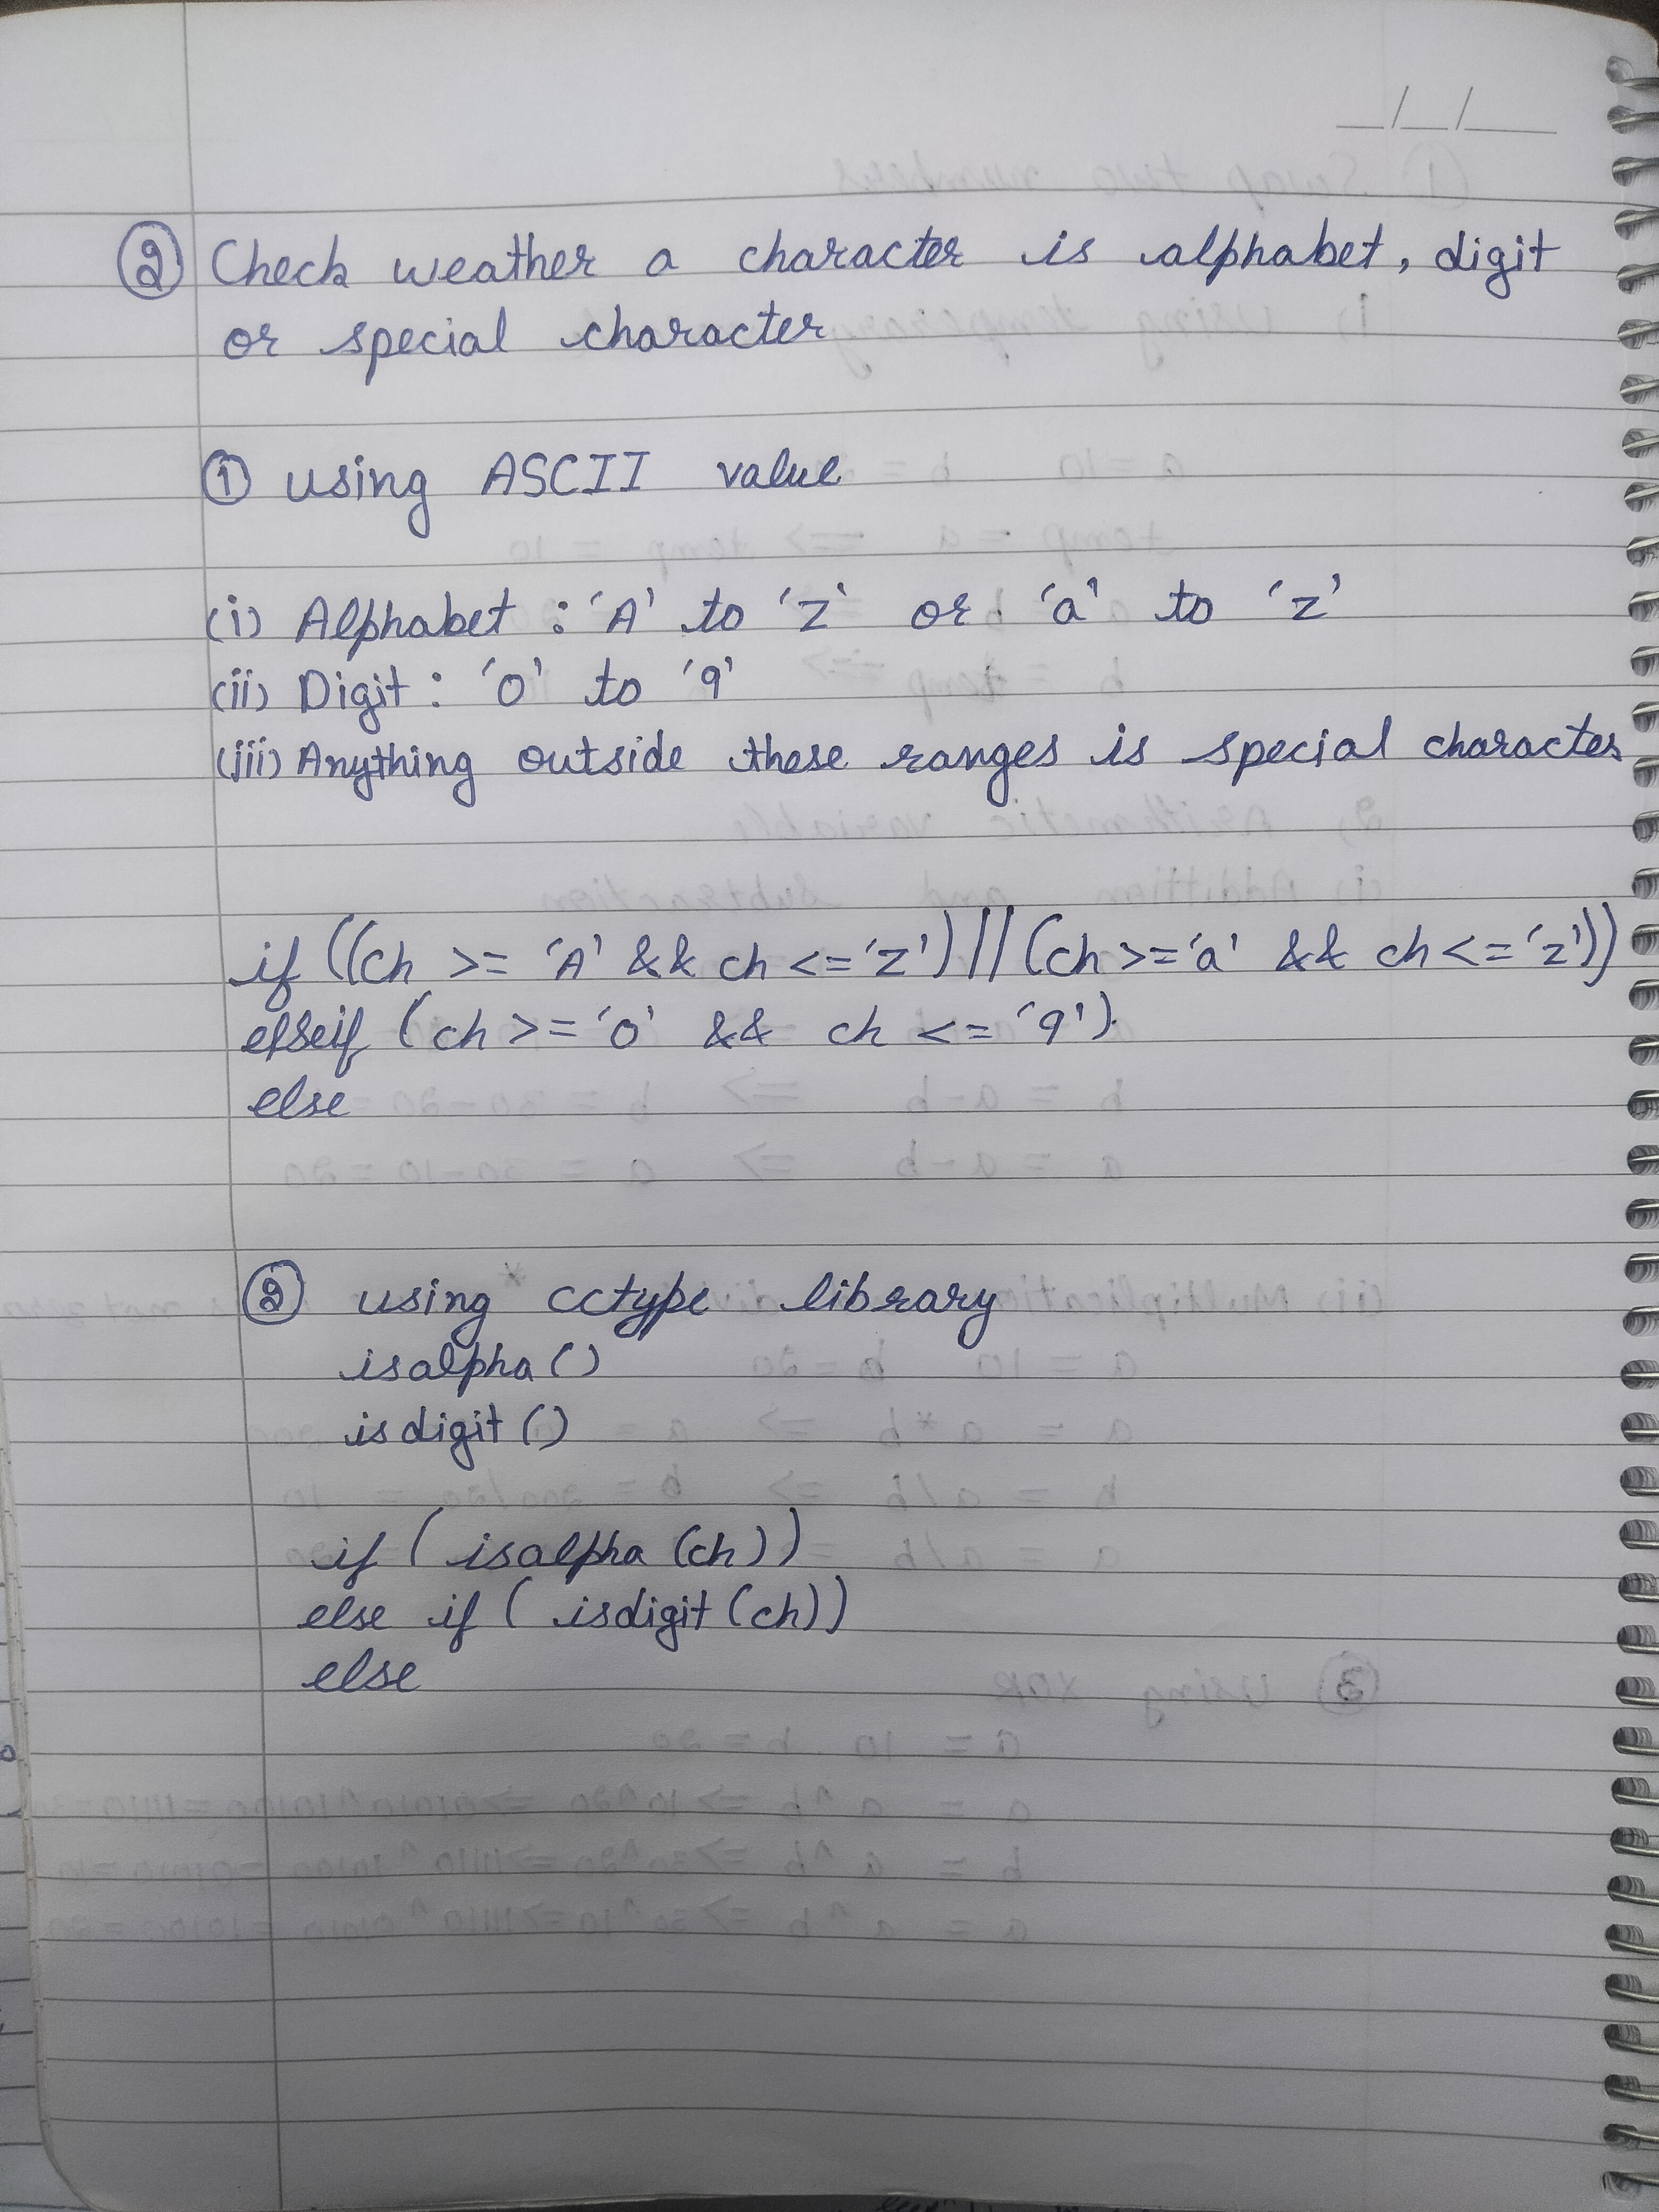 __/__/____
② Check weather a character is alphabet, digit
or special character
① using ASCII value
(i) Alphabet : 'A' to 'Z' or 'a' to 'z'
(ii) Digit : '0' to '9'
(iii) Anything outside these ranges is special character
if ((ch >= 'A' && ch <= 'Z') || (ch >= 'a' && ch <= 'z'))
elseif (ch >= '0' && ch <= '9')
else
② using cctype library
isalpha()
isdigit()
if (isalpha(ch))
else if (isdigit(ch))
else